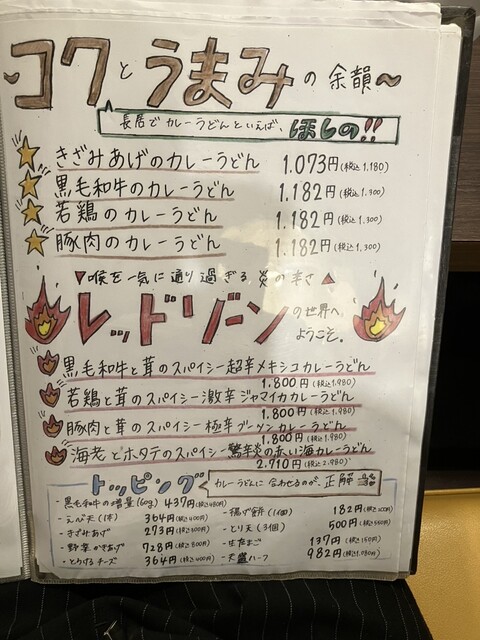 ~コクとうまみの余韻~
長居でカレーうどんといえば、ほしの!!
きざみあげのカレーうどん 1.073円(税込1.180)
黒毛和牛のカレーうどん 1.182円(税込1.300)
若鶏のカレーうどん 1.182円(税込1.300)
豚肉のカレーうどん 1.182円(税込1.300)
▼喉を一気に通り過ぎる炎の辛さ▼
レッドゾーンの世界へ、ようこそ。
黒毛和牛と茸のスパイシー超辛メキシコカレーうどん
1.800円(税込1.980)
若鶏と茸のスパイシー激辛ジャマイカカレーうどん
1.800円(税込1.980)
豚肉と茸のスパイシー極辛ブータンカレーうどん
1.800円(税込1.980)
海老とホタテのスパイシー驚辛炎の赤い海カレーうどん
2.710円(税込2.980)
トッピング カレーうどんに合わせるのが、正解
・黒毛和牛の増量(60g) 437円(税込480)
・えび天(1本) 364円(税込400円)
・きざみあげ 273円(税込300円)
・野菜かきあげ 728円(税込800円)
・とろけるチーズ 364円(税込400円)
・揚げ餅(1個) 182円(税込200円)
・とり天(3個) 500円(税込550円)
・生たまご 137円(税込150円)
・天盛ハーフ 982円(税込1.080円)